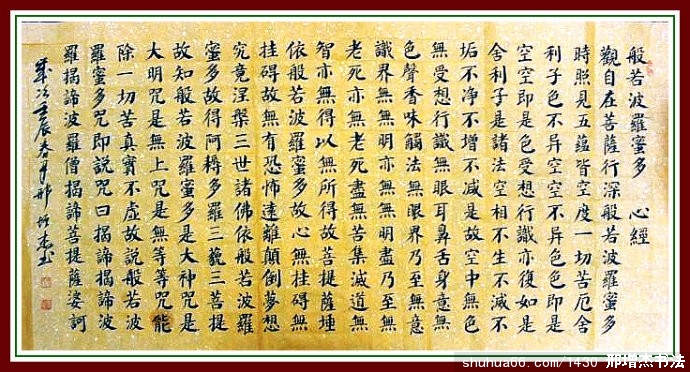 般若波羅蜜多 心經
觀自在菩薩行深般若波羅蜜多
時照見五蘊皆空度一切苦厄舍
利子色不异空空不异色色即是
空空即是色受想行識亦復如是
舍利子是諸法空相不生不滅不
垢不净不增不减是故空中無色
無受想行識無眼耳鼻舌身意無
色聲香味觸法無眼界乃至無意
識界無無明亦無無明盡乃至無
老死亦無老死盡無苦集滅道無
智亦無得以無所得故菩提薩埵
依般若波羅蜜多故心無挂碍無
挂碍故無有恐怖遠離顛倒夢想
究竟涅槃三世諸佛依般若波羅
蜜多故得阿耨多羅三藐三菩提
故知般若波羅蜜多是大神咒是
大明咒是無上咒是無等等咒能
除一切苦真實不虛故說般若波
羅蜜多咒即說咒曰揭諦揭諦波
羅揭諦波羅僧揭諦菩提薩婆訶
歲次壬辰春月邢增杰書
shuhua00.com/1430 邢增杰书法